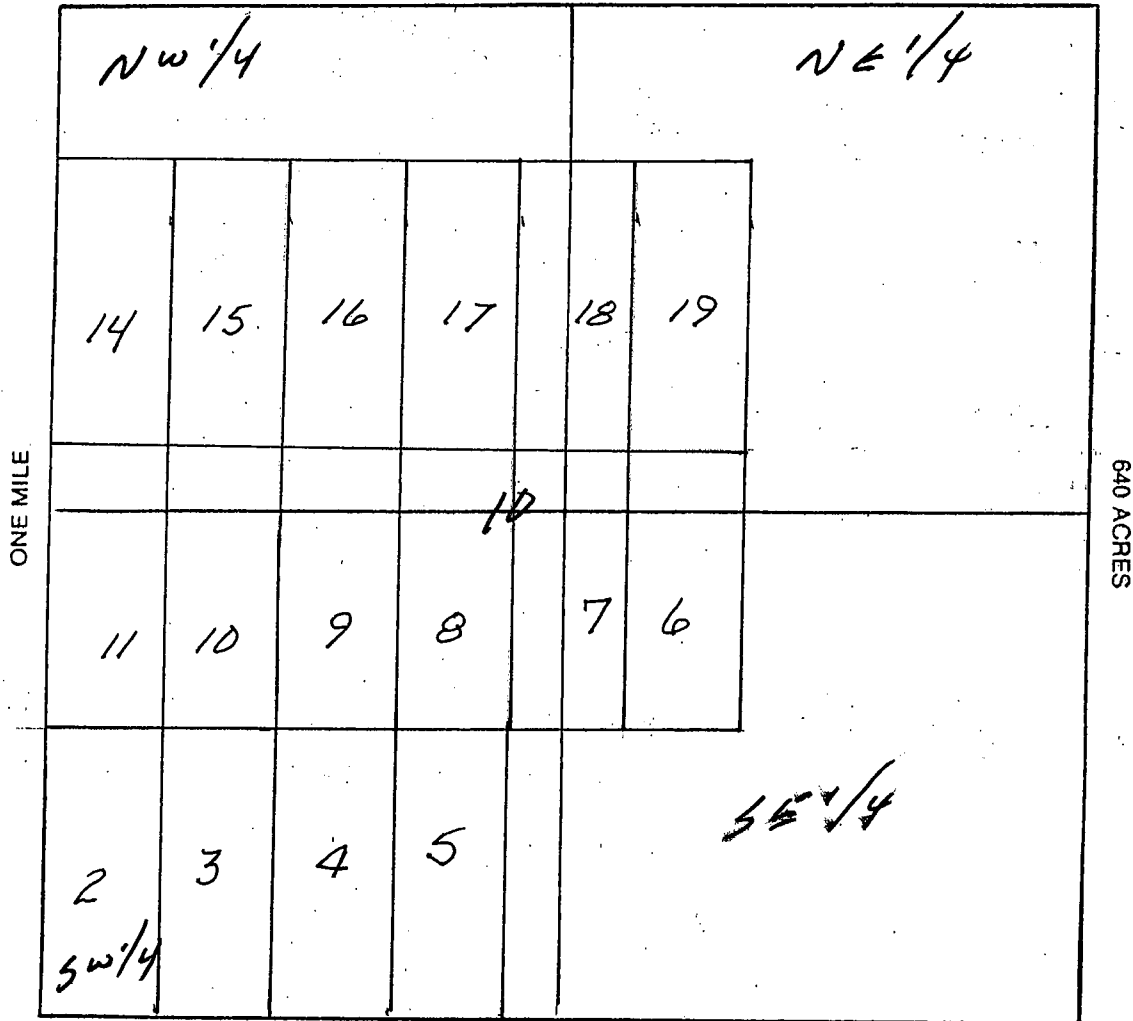 NW 1/4 NE 1/4
14 15 16 17 18 19
ONE MILE
640 ACRES
10
11 10 9 8 7 6
SE 1/4
2 3 4 5
SW 1/4